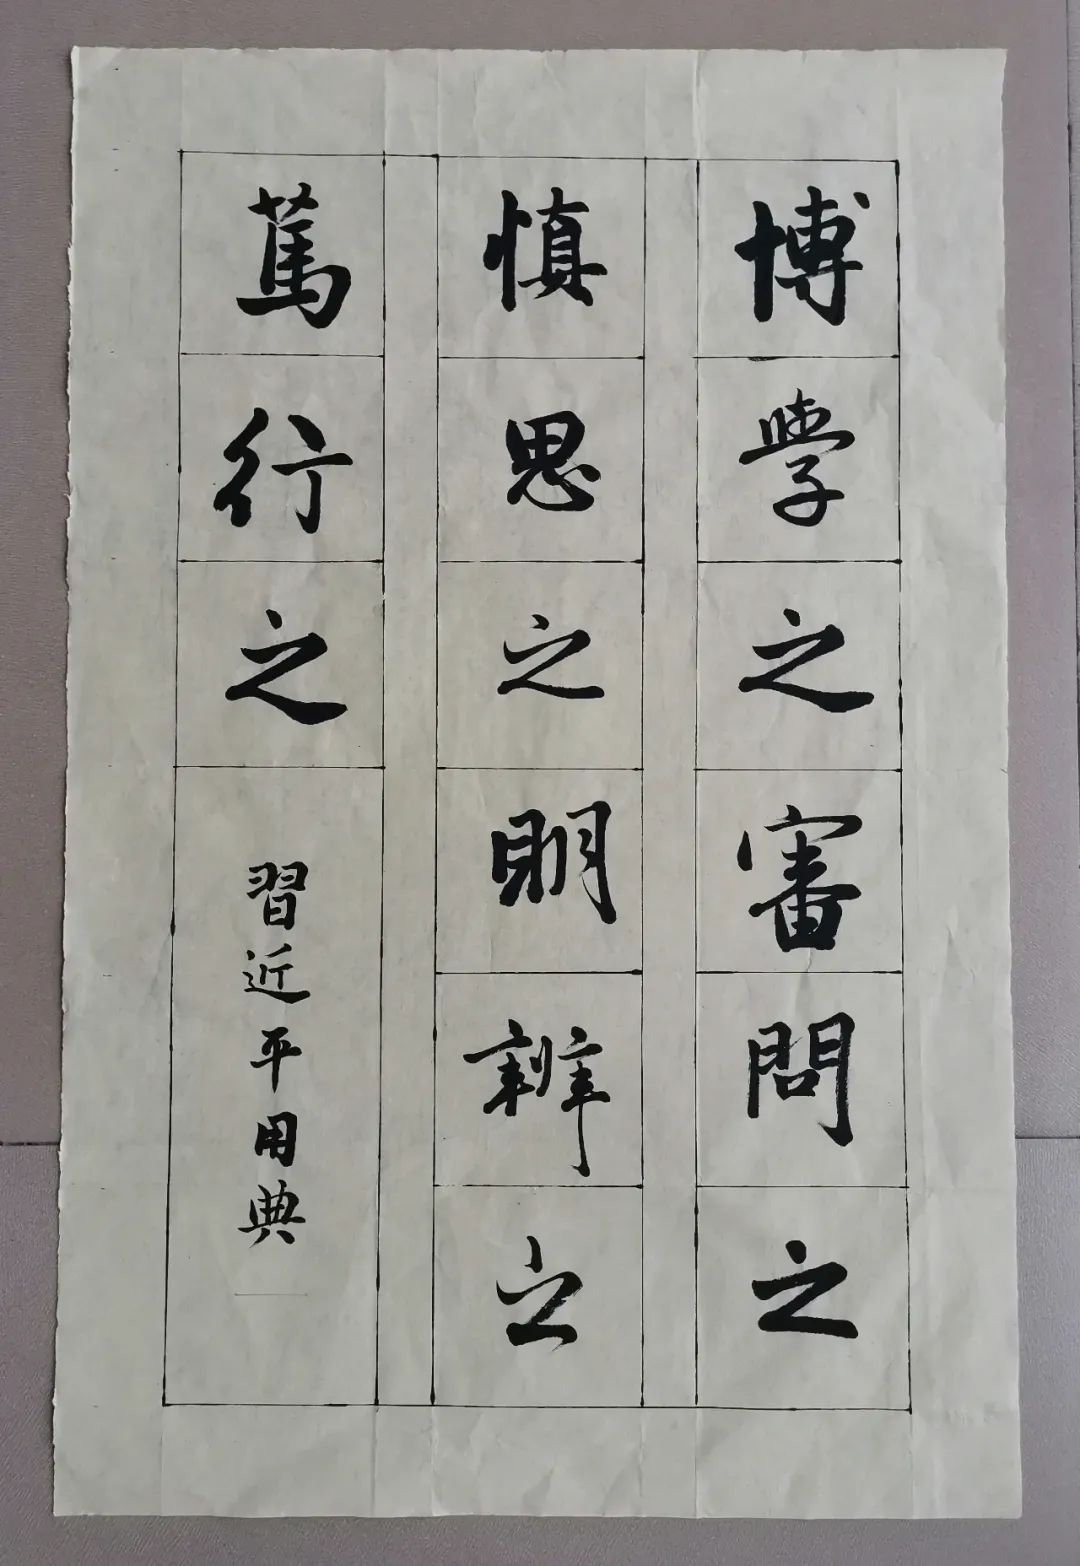 博學之審問之
慎思之明辨之
篤行之
習近平用典